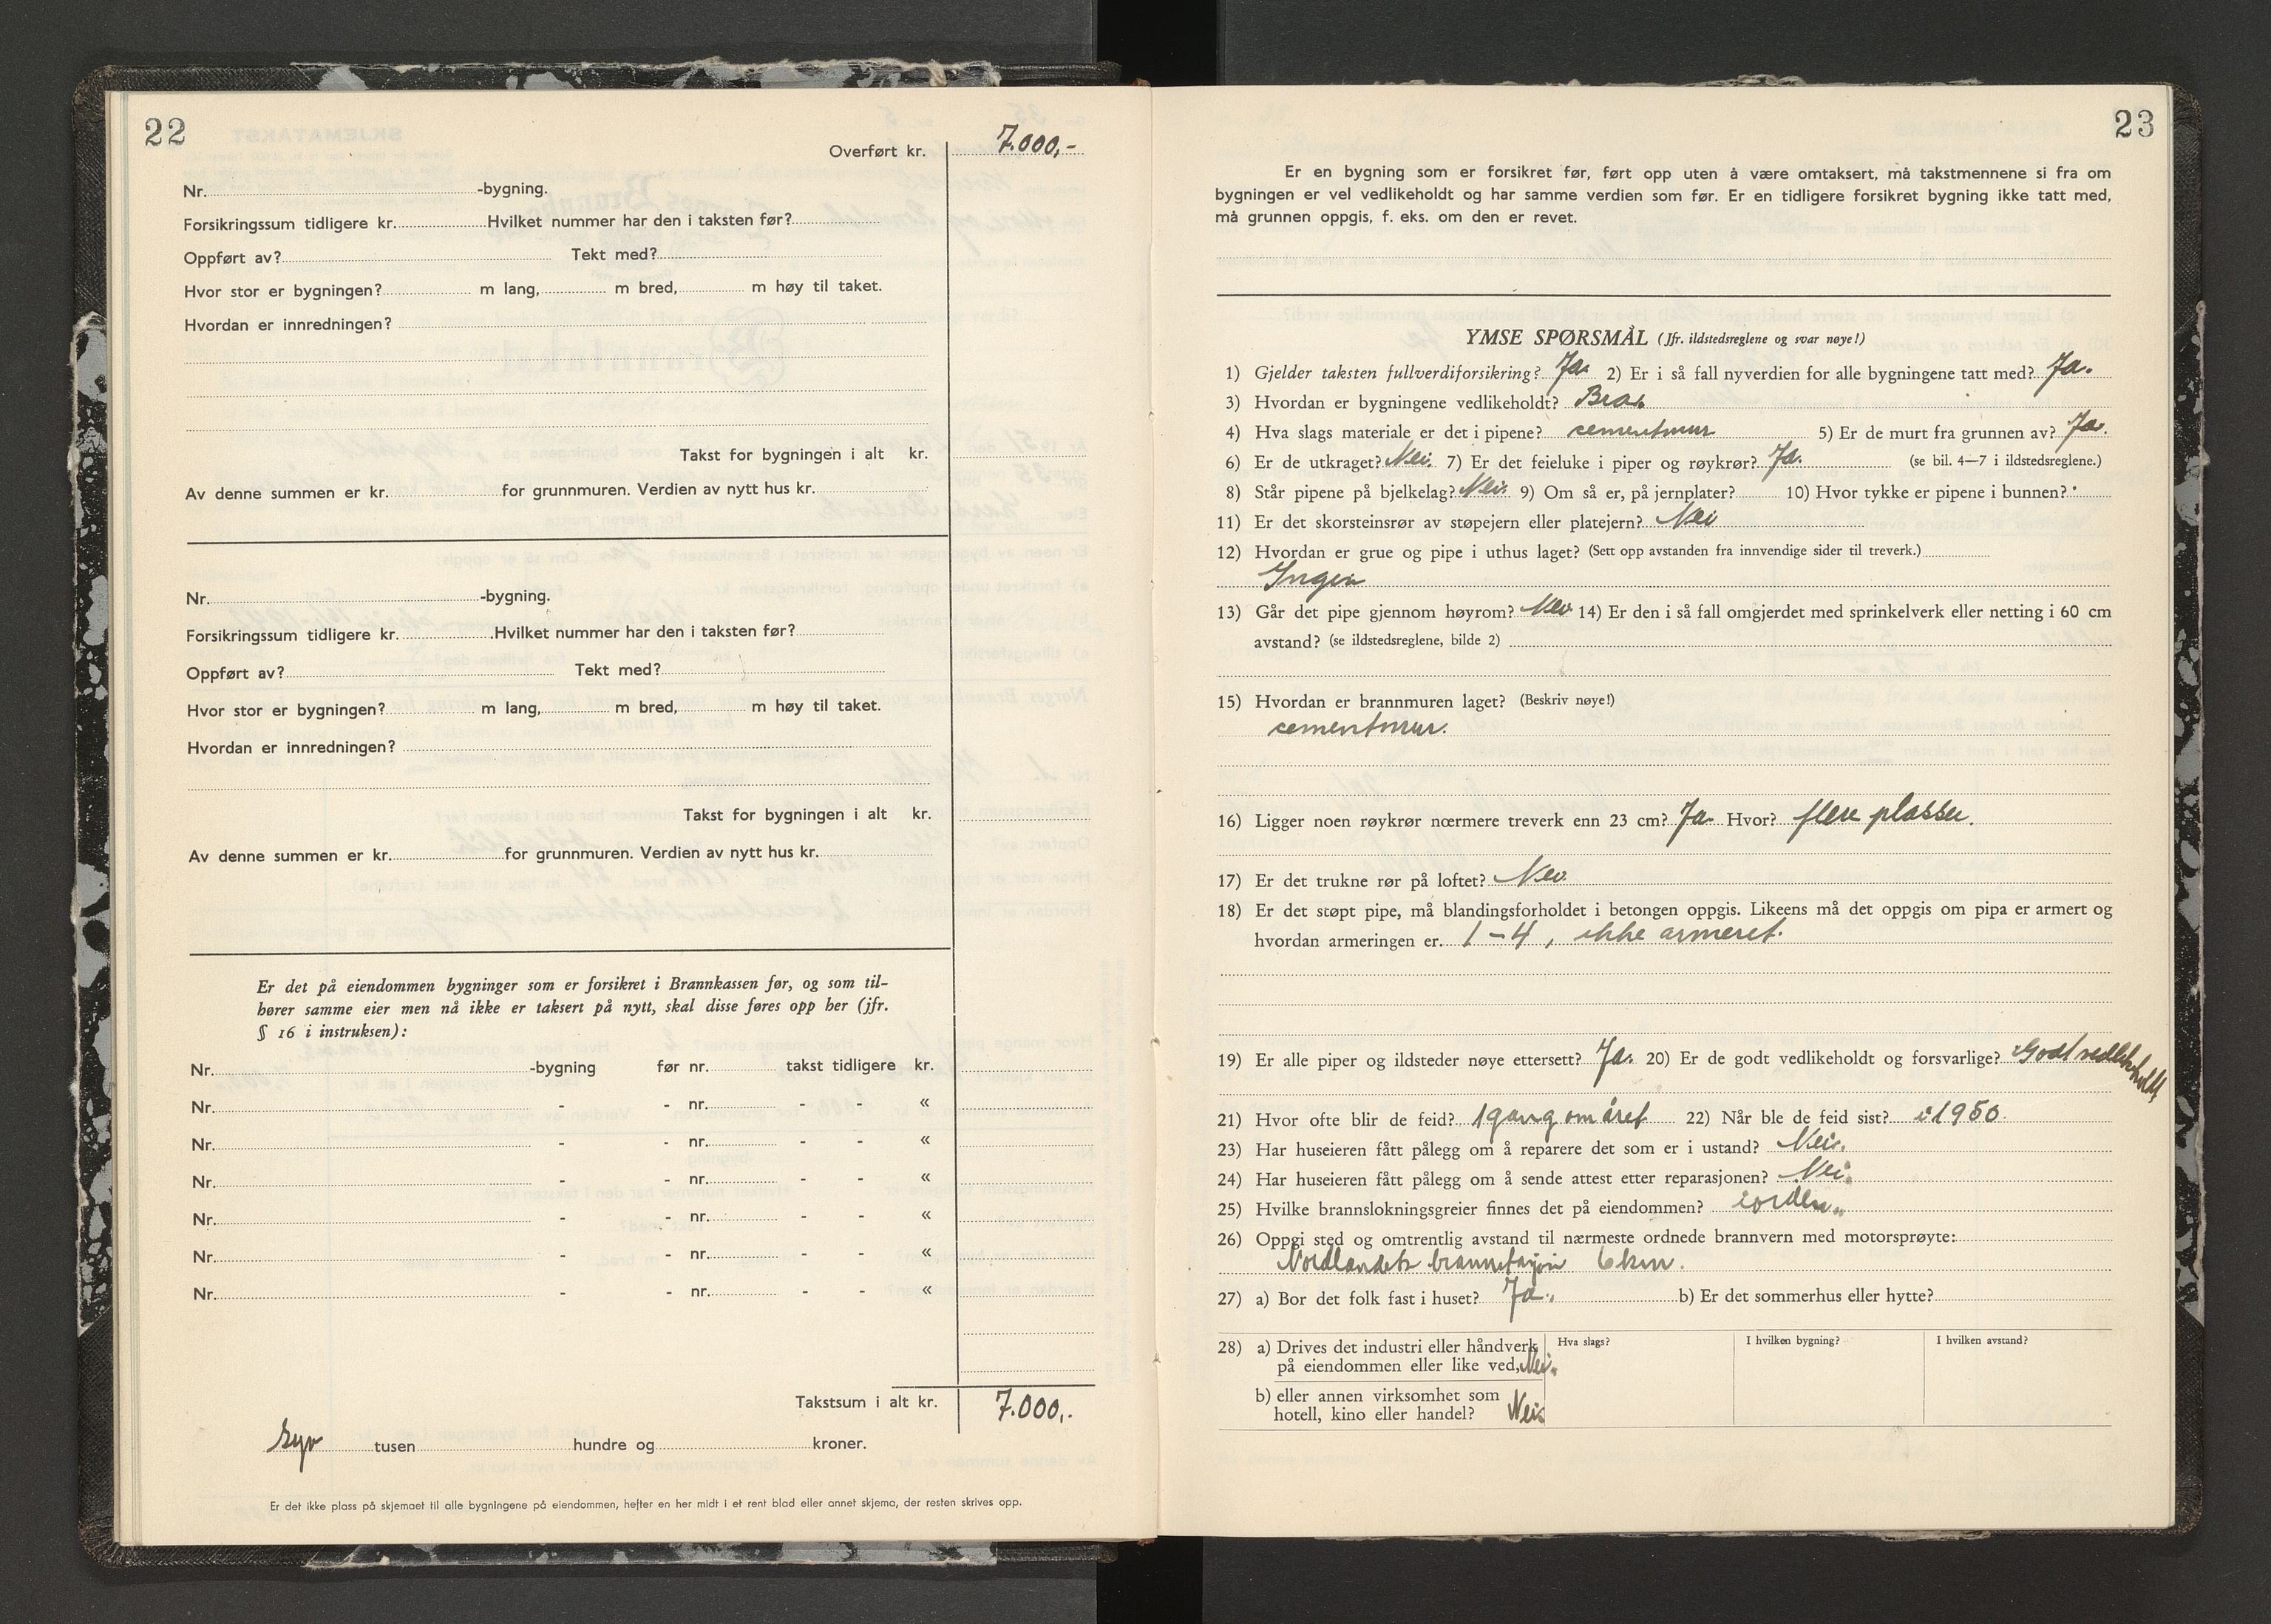 22
Overført kr. 7.000,-
Nr. -bygning.
Forsikringssum tidligere kr. Hvilket nummer har den i taksten før?
Oppført av? Tekt med?
Hvor stor er bygningen? m lang, m bred, m høy til taket.
Hvordan er innredningen?
Takst for bygningen i alt kr.
Av denne summen er kr. for grunnmuren. Verdien av nytt hus kr.
Nr. -bygning.
Forsikringssum tidligere kr. Hvilket nummer har den i taksten før?
Oppført av? Tekt med?
Hvor stor er bygningen? m lang, m bred, m høy til taket.
Hvordan er innredningen?
Takst for bygningen i alt kr.
Av denne summen er kr. for grunnmuren. Verdien av nytt hus kr.
Er det på eiendommen bygninger som er forsikret i Brannkassen før, og som til-
hører samme eier men nå ikke er taksert på nytt, skal disse føres opp her (jfr.
§ 16 i instruksen):
Nr. -bygning før nr. takst tidligere kr.
Nr. - - nr. - - «
Nr. - - nr. - - «
Nr. - - nr. - - «
Nr. - - nr. - - «
Nr. - - nr. - - «
Nr. - - nr. - - «
Takstsum i alt kr. 7.000,-
Syv tusen hundre og kroner.
Er det ikke plass på skjemaet til alle bygningene på eiendommen, hefter en her midt i et rent blad eller annet skjema, der resten skrives opp.
23
Er en bygning som er forsikret før, ført opp uten å være omtaksert, må takstmennene si fra om
bygningen er vel vedlikeholdt og har samme verdien som før. Er en tidligere forsikret bygning ikke tatt med,
må grunnen oppgis, f. eks. om den er revet.
YMSE SPØRSMÅL (Jfr. ildstedsreglene og svar nøye!)
1) Gjelder taksten fullverdiforsikring? Ja. 2) Er i så fall nyverdien for alle bygningene tatt med? Ja.
3) Hvordan er bygningene vedlikeholdt? Bra.
4) Hva slags materiale er det i pipene? cementmur 5) Er de murt fra grunnen av? Ja.
6) Er de utkraget? Nei. 7) Er det feieluke i piper og røykrør? Ja. (se bil. 4—7 i ildstedsreglene.)
8) Står pipene på bjelkelag? Nei. 9) Om så er, på jernplater? 10) Hvor tykke er pipene i bunnen?
11) Er det skorsteinsrør av støpejern eller platejern? Nei
12) Hvordan er grue og pipe i uthus laget? (Sett opp avstanden fra innvendige sider til treverk.)
Ingen
13) Går det pipe gjennom høyrom? Nei 14) Er den i så fall omgjerdet med sprinkelverk eller netting i 60 cm
avstand? (se ildstedsreglene, bilde 2)
15) Hvordan er brannmuren laget? (Beskriv nøye!)
cementmur.
16) Ligger noen røykrør nœrmere treverk enn 23 cm? Ja. Hvor? flere plasser.
17) Er det trukne rør på loftet? Nei
18) Er det støpt pipe, må blandingsforholdet i betongen oppgis. Likeens må det oppgis om pipa er armert og
hvordan armeringen er. 1–4, ikke armeret.
19) Er alle piper og ildsteder nøye ettersett? Ja. 20) Er de godt vedlikeholdt og forsvarlige? Godt vedlikeholdt
21) Hvor ofte blir de feid? 1 gang om året 22) Når ble de feid sist? i 1950.
23) Har huseieren fått pålegg om å reparere det som er i ustand? Nei.
24) Har huseieren fått pålegg om å sende attest etter reparasjonen? Nei.
25) Hvilke brannslokningsgreier finnes det på eiendommen? iorden.
26) Oppgi sted og omtrentlig avstand til nærmeste ordnede brannvern med motorsprøyte:
Nordlandets brannstasjon 6 km.
27) a) Bor det folk fast i huset? Ja. b) Er det sommerhus eller hytte?
28) a) Drives det industri eller håndverk Hva slags? I hvilken bygning? I hvilken avstand?
på eiendommen eller like ved, Nei.
b) eller annen virksomhet som
hotell, kino eller handel? Nei.